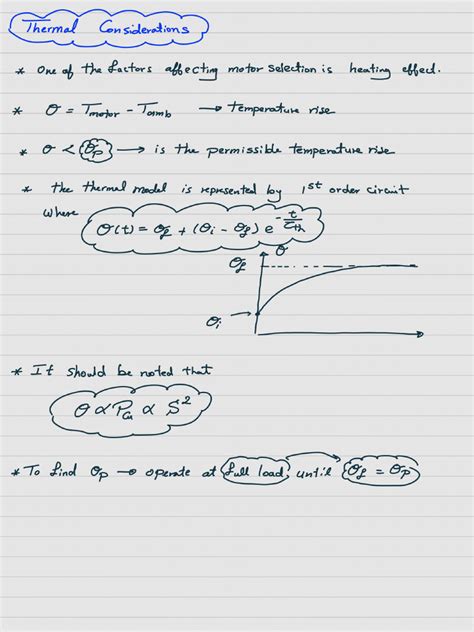 Thermal Considerations
* One of the factors affecting motor selection is heating effect.
* θ = Tmotor - Tamb → temperature rise
* θ < θp → is the permissible temperature rise
* the thermal model is represented by 1st order circuit
where
θ(t) = θf + (θi - θf) e^(-t/τth)
θ
θf
θi
* It should be noted that
θ ∝ Pcu ∝ S²
* To find θp → operate at full load, until θf = θp